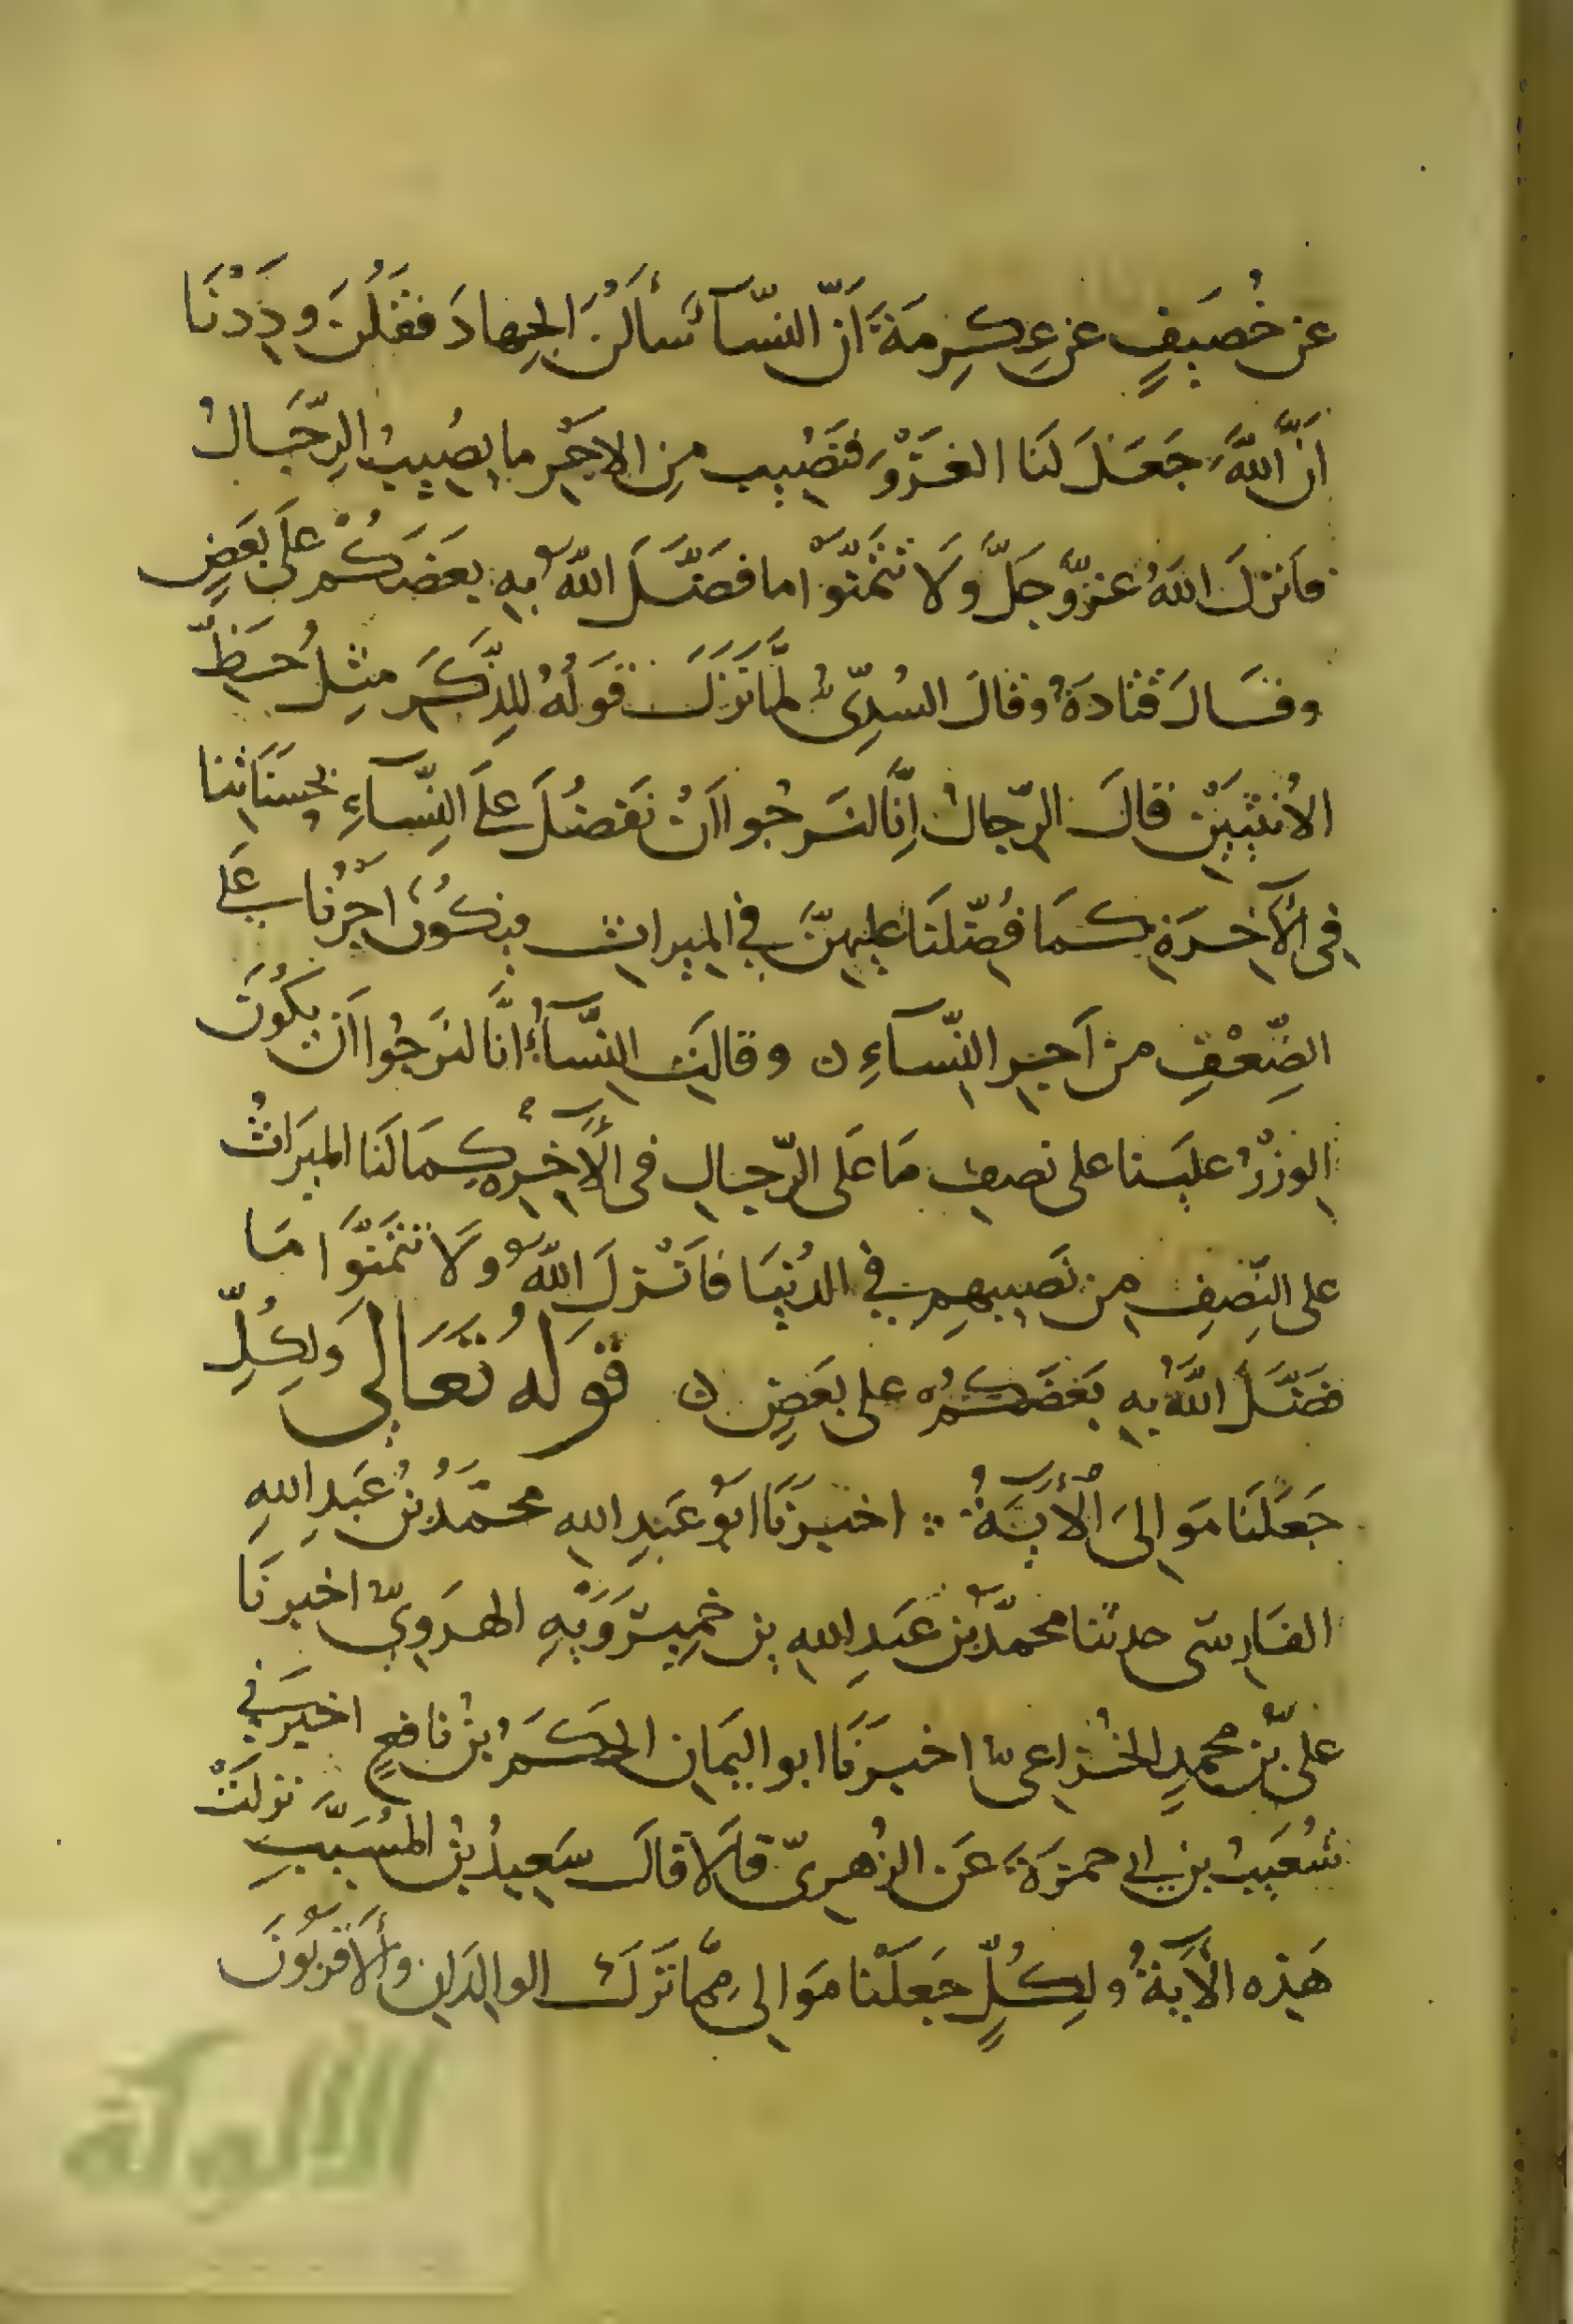 عن خُصَيفٍ عن عِكرِمَةَ اَنّ النّسآءَ سَأَلنَ الجِهادَ فقَلْنَ وَدِدْنَا
اَنَّ اللّهَ جَعَلَ لَنَا الغَزْوَ فنُصِيب مِن الاجْرِ ما يصِيبُ الرِّجَالُ
فاَنزلَ اللهُ عزّ وّجَلَّ وَلَا تتَمَنَّوْا ما فضَّلَ اللّهُ بِهِ بعَضَكُمْ عَلى بَعَضٍ
وقَالَ قتادَةُ وقالَ السُدِّىُّ لمَّا نَزَلَ قوَلُهُ لِلذَّكَرِ مثِلُ حَظِّ
الاُنثَيَيْنِ قالَ الرّجالُ اِنَّا لنَرجُوا اَنْ نَفضُلَ عَلَى النِّسآءِ بحسنَاتنا
فِى الآخِرَةِ كمَا فُضّلنَا عليهنّ في الميراثِ فيكُونُ اجْرُنا عَلى
الضِّعْفِ من اَجرِ النّسآءِ ن وقالتِ النّسآءُ انَّا لنَرجُوا اَن يكُونَ
الوِزْرُ علَينا على نصفِ مَا عَلى الرّجالِ فى الآخِرةِ كمَا لَنَا الميرَاثُ
على النّصِفِ من نَصيبهِم في الدُنيَا فاَنْزلَ اللّهُ وَلَا تتَمَنَّوْا مَا
فضَّلَ اللّهُ بِهِ بَعَضَكُمْ على بعَضٍ ن قوَله تَعَالى وَلِكُلٍّ
جَعَلنَا مَوالىَ اْلآيَةُ ∴ اخبرَنَا ابوُ عَبدِ الله محمّدُ بنُ عَبدِ اللهِ
الفَارِسّى حدثنا محمّدُ بن عَبدِ الله بن خَمِيرَوَيْهِ الهرَوِيّ اخبرنَا
علىّ بن محمدٍ الخُزاعىّ اخبرَنَا ابو اليَمَان الحَكَمُ بنُ نافعٍ اخبرَني
شُعَيبُ بن ابى حمزَةَ عَن الزُهرىّ قالَ قالَ سَعِيدُ بنُ المُسَيَّبِ نزلَتْ
هَذِه الآيَةُ ولِكُلٍّ جَعَلْنا مَوالىِ مِمَّا تَرَكَ الوالِدَانِ والأَقرَبُونَ
الألوكة